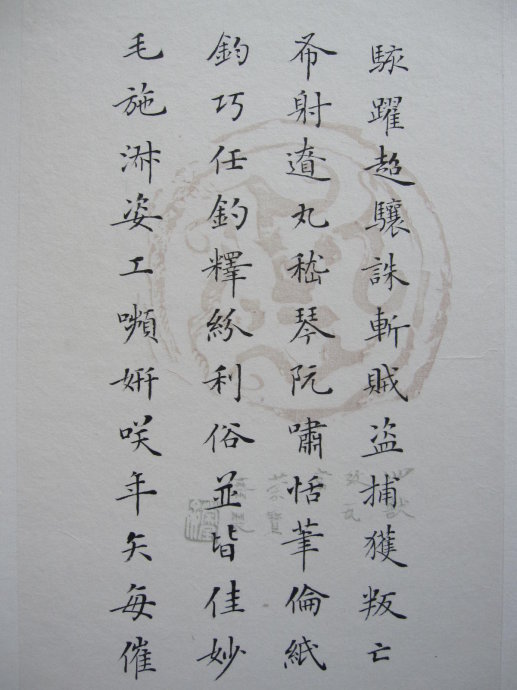 駭躍超驤誅斬賊盗捕獲叛亡
布射遼丸嵇琴阮嘯恬筆倫紙
鈞巧任釣釋紛利俗並皆佳妙
毛施淑姿工嚬妍咲年矢每催